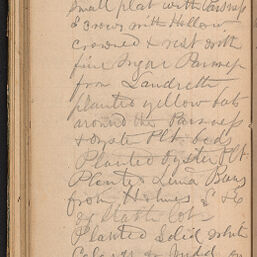 Small plat with Parsnep
2 rows with Hollow
crowned & rest with
fine Sugar Parsnep
from Landreth
planted yellow beets
around the Parsneps
& Oyster Plt. bed
Planted Oyster Plt.
Planted Lima Beans
from Holmes
Planted Solid White
Celery